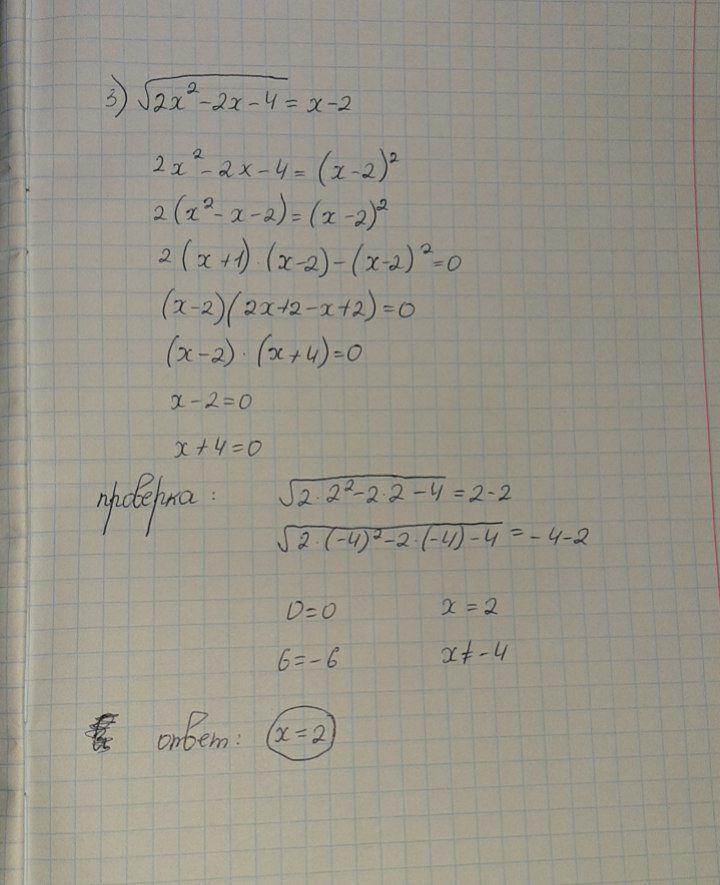 3) √(2x²-2x-4) = x-2
2x²-2x-4 = (x-2)²
2(x²-x-2) = (x-2)²
2(x+1)·(x-2)-(x-2)²=0
(x-2)(2x+2-x+2)=0
(x-2)·(x+4)=0
x-2=0
x+4=0
проверка: √(2·2²-2·2-4) = 2-2
√(2·(-4)²-2·(-4)-4) = -4-2
0=0 x=2
6=-6 x≠-4
ответ: x=2